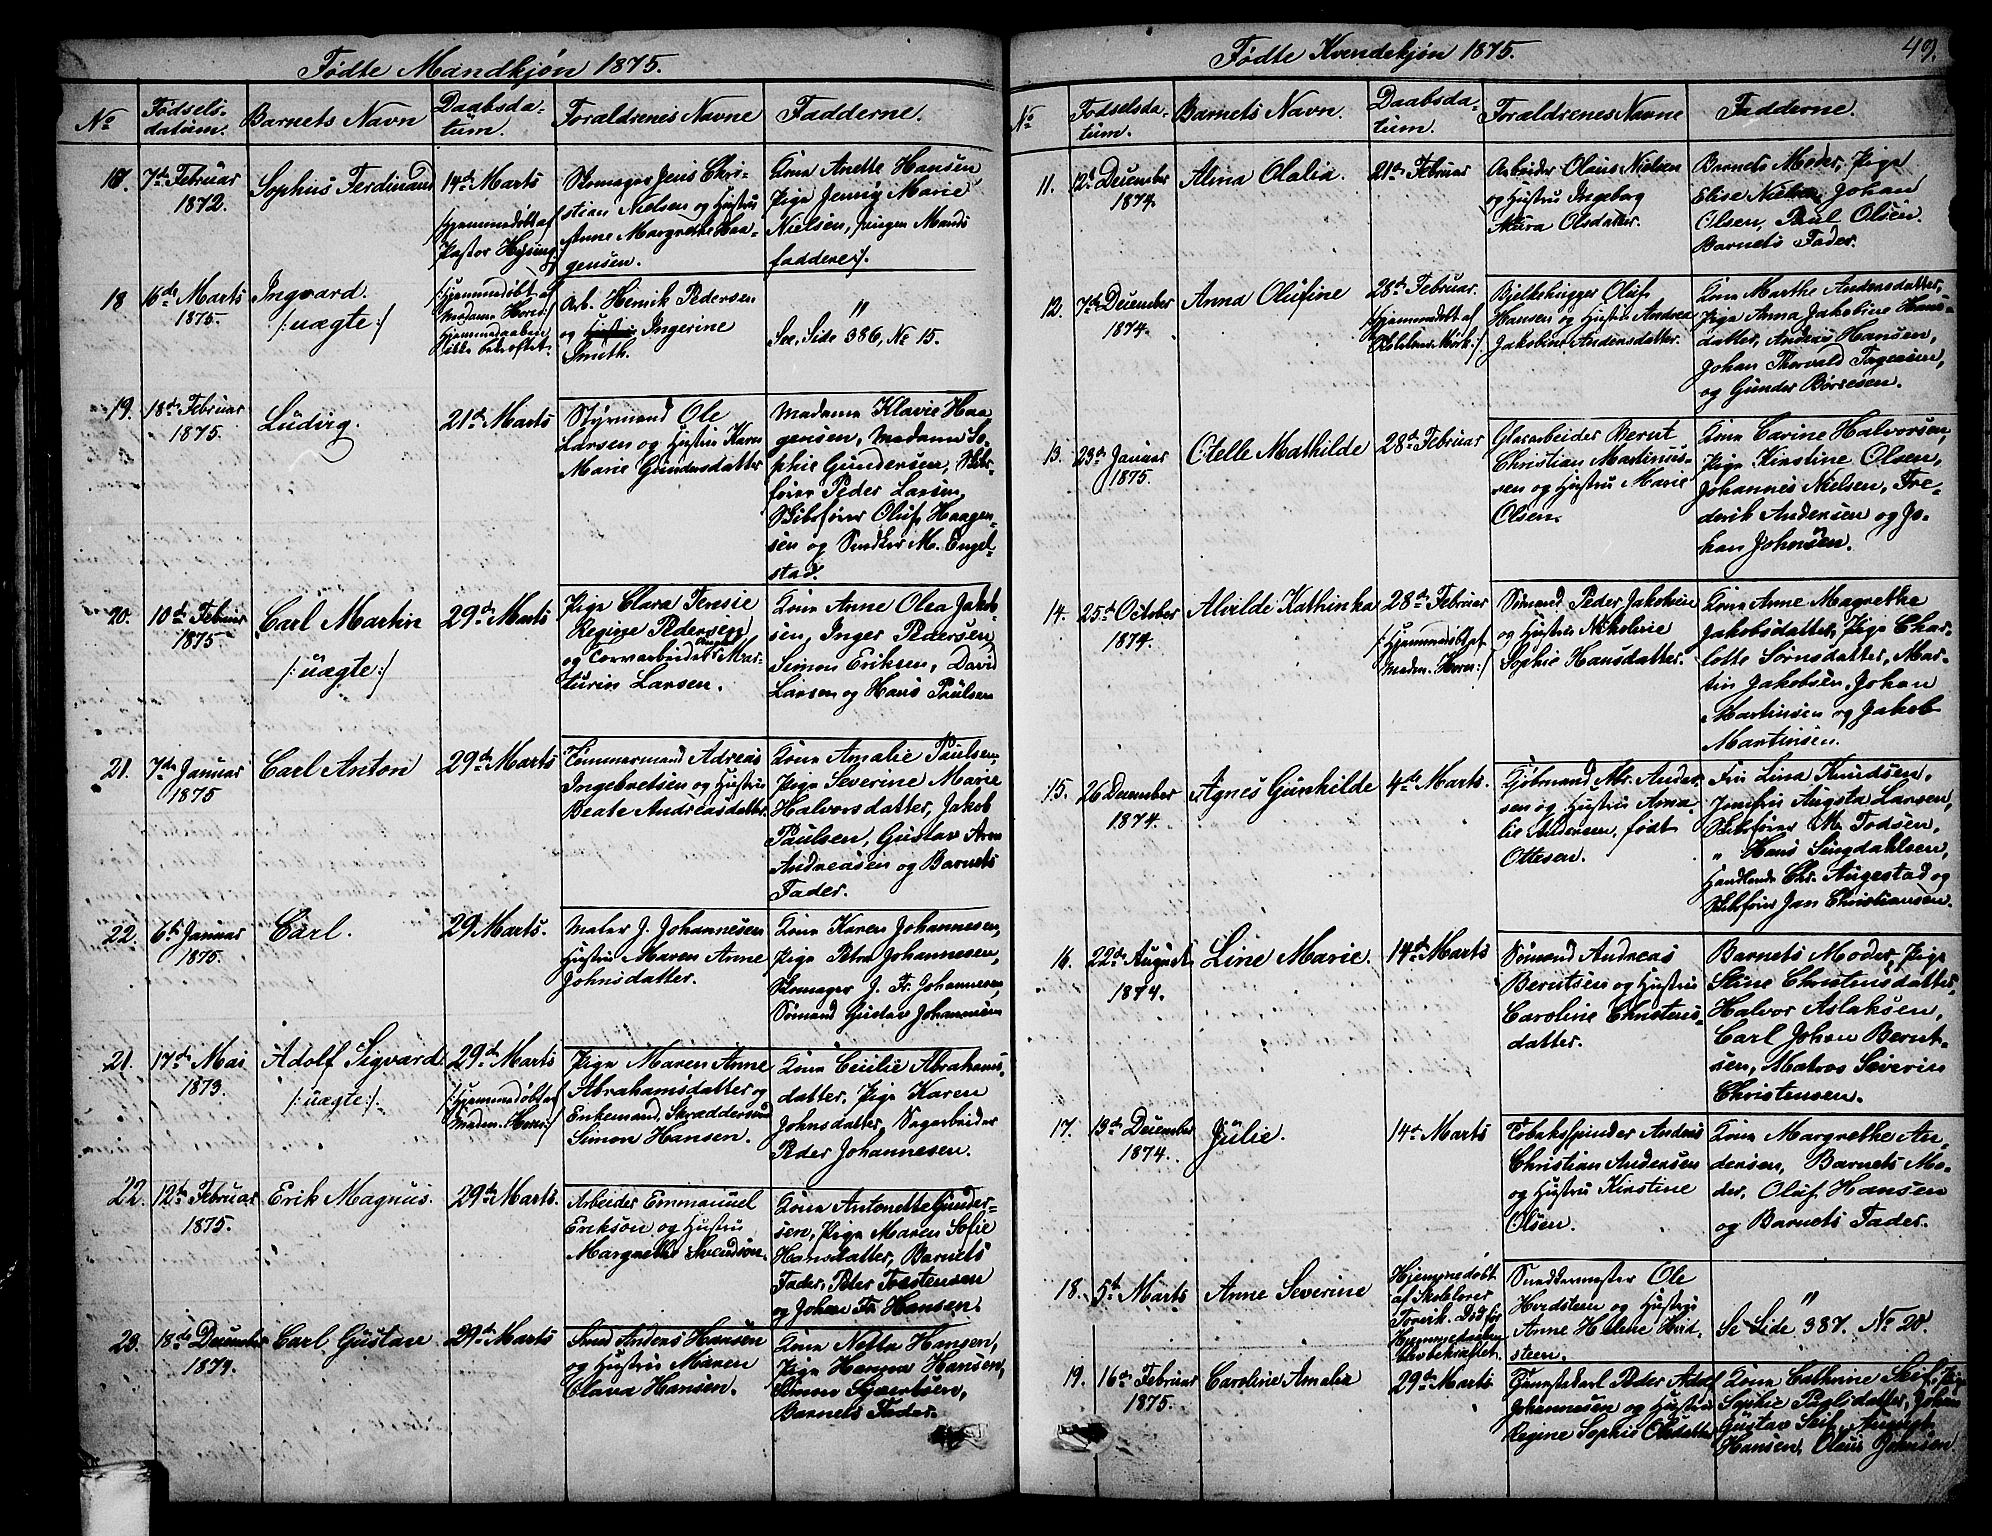 Fødte Mandkjøn 1875.
No
Fødsels-
datum.
Barnets Navn
Daabsda-
tum.
Forældrenes Navne
Fadderne.
17. 7de Februar
1872.
Sophus Ferdinand
14de Marts
/:hjemmedøbt af
Pastor Hysing:/
Skomager Jens Chri-
stian Nielsen og Hustru
Anne Margrethe Haa-
gensen.
Kona Anette Hansen
Pige Jenny Marie
Nielsen, /:ingen Mands
faddere:/.
18 16de Marts
1875.
Ingvard.
/:uægte:/
/:hjemmedøbt af
Madame Horn:/
Hjemmedaaben
ikke bekræftet.
Arb. Henrik Pedersen
og Ingerine
Smith.
"
See Side 386, No 15.
19. 18de Februar
1875.
Ludvig.
21de Marts
Styrmand Ole
Larsen og Hustru Karen
Marie Gundersdatter
Madame Klavie Haa
gensen, Madame So-
phie Gundersen, Skibs-
fører Peder Larsen,
Skibsfører Oluf Haagen-
sen og Snedker M. Engel-
stad.
20. 10de Februar
1875
Carl Martin
/:uægte:/
29de Marts
Pige Clara Teresie
Regine Pedersen
og Mar-
tinus Larsen.
Kona Anne Olea Jakob-
sen, Inger Pedersen,
Simon Eriksen, David
Larsen og Hans Paulsen
21. 7de Januar
1875
Carl Anton
29de Marts
Tømmermand Adreas
Ingebretsen og Hustru
Beate Andreasdatter
Kona Amalie Paulsen,
Pige Severine Marie
Halvorsdatter, Jakob
Paulsen, Gustav Aron
Andreasen og Barnets
Fader.
22. 6te Januar
1875.
Carl.
29 Marts.
Maler J. Johannesen
Hustru Maren Anne
Johnsdatter.
Kona Karen Johannesen,
Pige Petra Johannesen,
Skomager J. Fr. Johannesen,
Sømand Gustav Johannesen
21. 17de Mai
1873.
Adolf Sigvard.
/:uægte:/.
29de Marts
/:hjemmedøbt af
Madm. Horn:/
Pige Maren Anne
Abrahamsdatter og
Enkemand, Skræddersvend
Simon Hansen.
Kona Cecilie Abrahams-
datter, Pige Karen
Johnsdatter, Sagarbeider
Peder Johannesen.
22. 12te Februar
1875.
Erik Magnus.
29de Marts.
Arbeider Emmanuel
Erikson og Hustru
Margrethe Svendson.
Kona Antonette Gunder-
sen, Pige Maren Sofie
Hansdatter, Barnets
Fader, Peter Torstensen
og Johan Fr. Hansen.
23. 18de December
1874.
Carl Gustav
29de Marts
Smed Anders Hansen
og Hustru Maren
Olava Hansen.
Kona Netta Hansen,
Pige Hanna Hansen,
Simon Syvertsen,
Barnets Fader.
Fødte Kvendekjøn 1875.
49.
No
Fødselsda-
tum.
Barnets Navn.
Daabsda-
tum.
Forældrenes Navne
Fadderne.
11. 12te December
1874.
Alma Olalia.
21de Februar
Arbeider Olaus Nielsen
og Hustru Ingeborg
Maria Olsdatter.
Barnets Moder, Pige
Elise Nielsen, Johan
Olsen, Paul Olsen.
Barnets Fader.
12. 7de December
1874.
Anna Olufine
28de Februar.
/:hjemmedøbt af
Bjelkehugger Oluf
Hansen og Hustru Andrea
Jakobine Andersdatter.
Kona Marthe Andersdatter,
Pige Anna Jakobine Hans-
datter, Anders Hansen,
Johan Thorvald Torgersen,
og Gunder Børresen.
13. 23de Januar
1875.
Otelle Mathilde
28de Februar
Glasarbeider Bernt
Christian Martinus-
sen og Hustru Marie
Olsen.
Kona Carine Halvorsen,
Pige Kirstine Olsen,
Johannes Nielsen, Fre-
derik Andersen og Jo-
han Johnsen.
14. 25de October
1874.
Alvilde Kathinka
28de Februar
/:Hjemmedøbt af
Madm. Horn:/
Sømand Peder Jakobsen
og Hustru Nikoline
Sophie Hansdatter.
Kona Anne Magrethe
Jakobsdatter, Pige Char-
lotte Sørnsdatter, Mar-
tin Jakobsen, Johan
Martinsen og Jakob
Martinsen.
15. 26 December
1874.
Agnes Gunhilde
4de Marts.
Kjøbmand Mr. Ander-
sen og Hustru Ama-
lie Andersen, født
Ottesen.
Frk Lina Knudsen,
Jomfru Augsta Larsen,
Skibsfører M. Todsen,
" Hans Singdahlsen,
Handlende Chr. Augestad og
Skibsfører Jan Christiansen.
16. 22de August
1874.
Line Marie.
14de Marts
Sømand Andreas
Berntsen og Hustru
Caroline Christens-
datter.
Barnets Moder, Pige
Stine Christensdatter,
Halvor Aslaksen,
Carl Johan Bernt-
sen, Matros Severin
Christensen.
17. 13de December
1874.
Julie.
14de Marts
Tobakspinder Anders
Christian Andersen
og Hustru Kirstine
Olsen.
Kona Margrethe An-
dersen, Barnets Mo-
der, Oluf Hansen
og Barnets Fader.
18. 5te Marts
Anne Severine
Hjemmedøbt
af Skolelærer
Torvik. Død før
Hjemmedaaben
blev bekræftet.
Snedkermester Ole
Hvidsteen og Hustru
Anne Helene Hvid-
steen.
"
Se Side 387. No 20.
19. 16de Februar
1875.
Caroline Amalia
29de Marts
Tjenestekarl Peder Adolf
Johannesen og Hustru
Regine Sophie Olsdatter
Kona Cathrine Seif, Pige
Sophie Pegilsdatter, Johan
Gustav Seif, August
Hansen, Olaus Johnsen